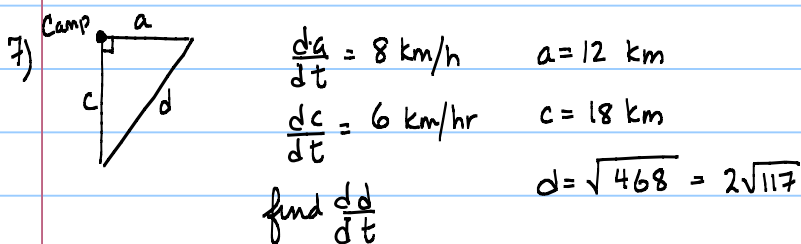 7) Camp a
c d
da/dt = 8 km/h a = 12 km
dc/dt = 6 km/hr c = 18 km
d = √468 = 2√117
find dd/dt